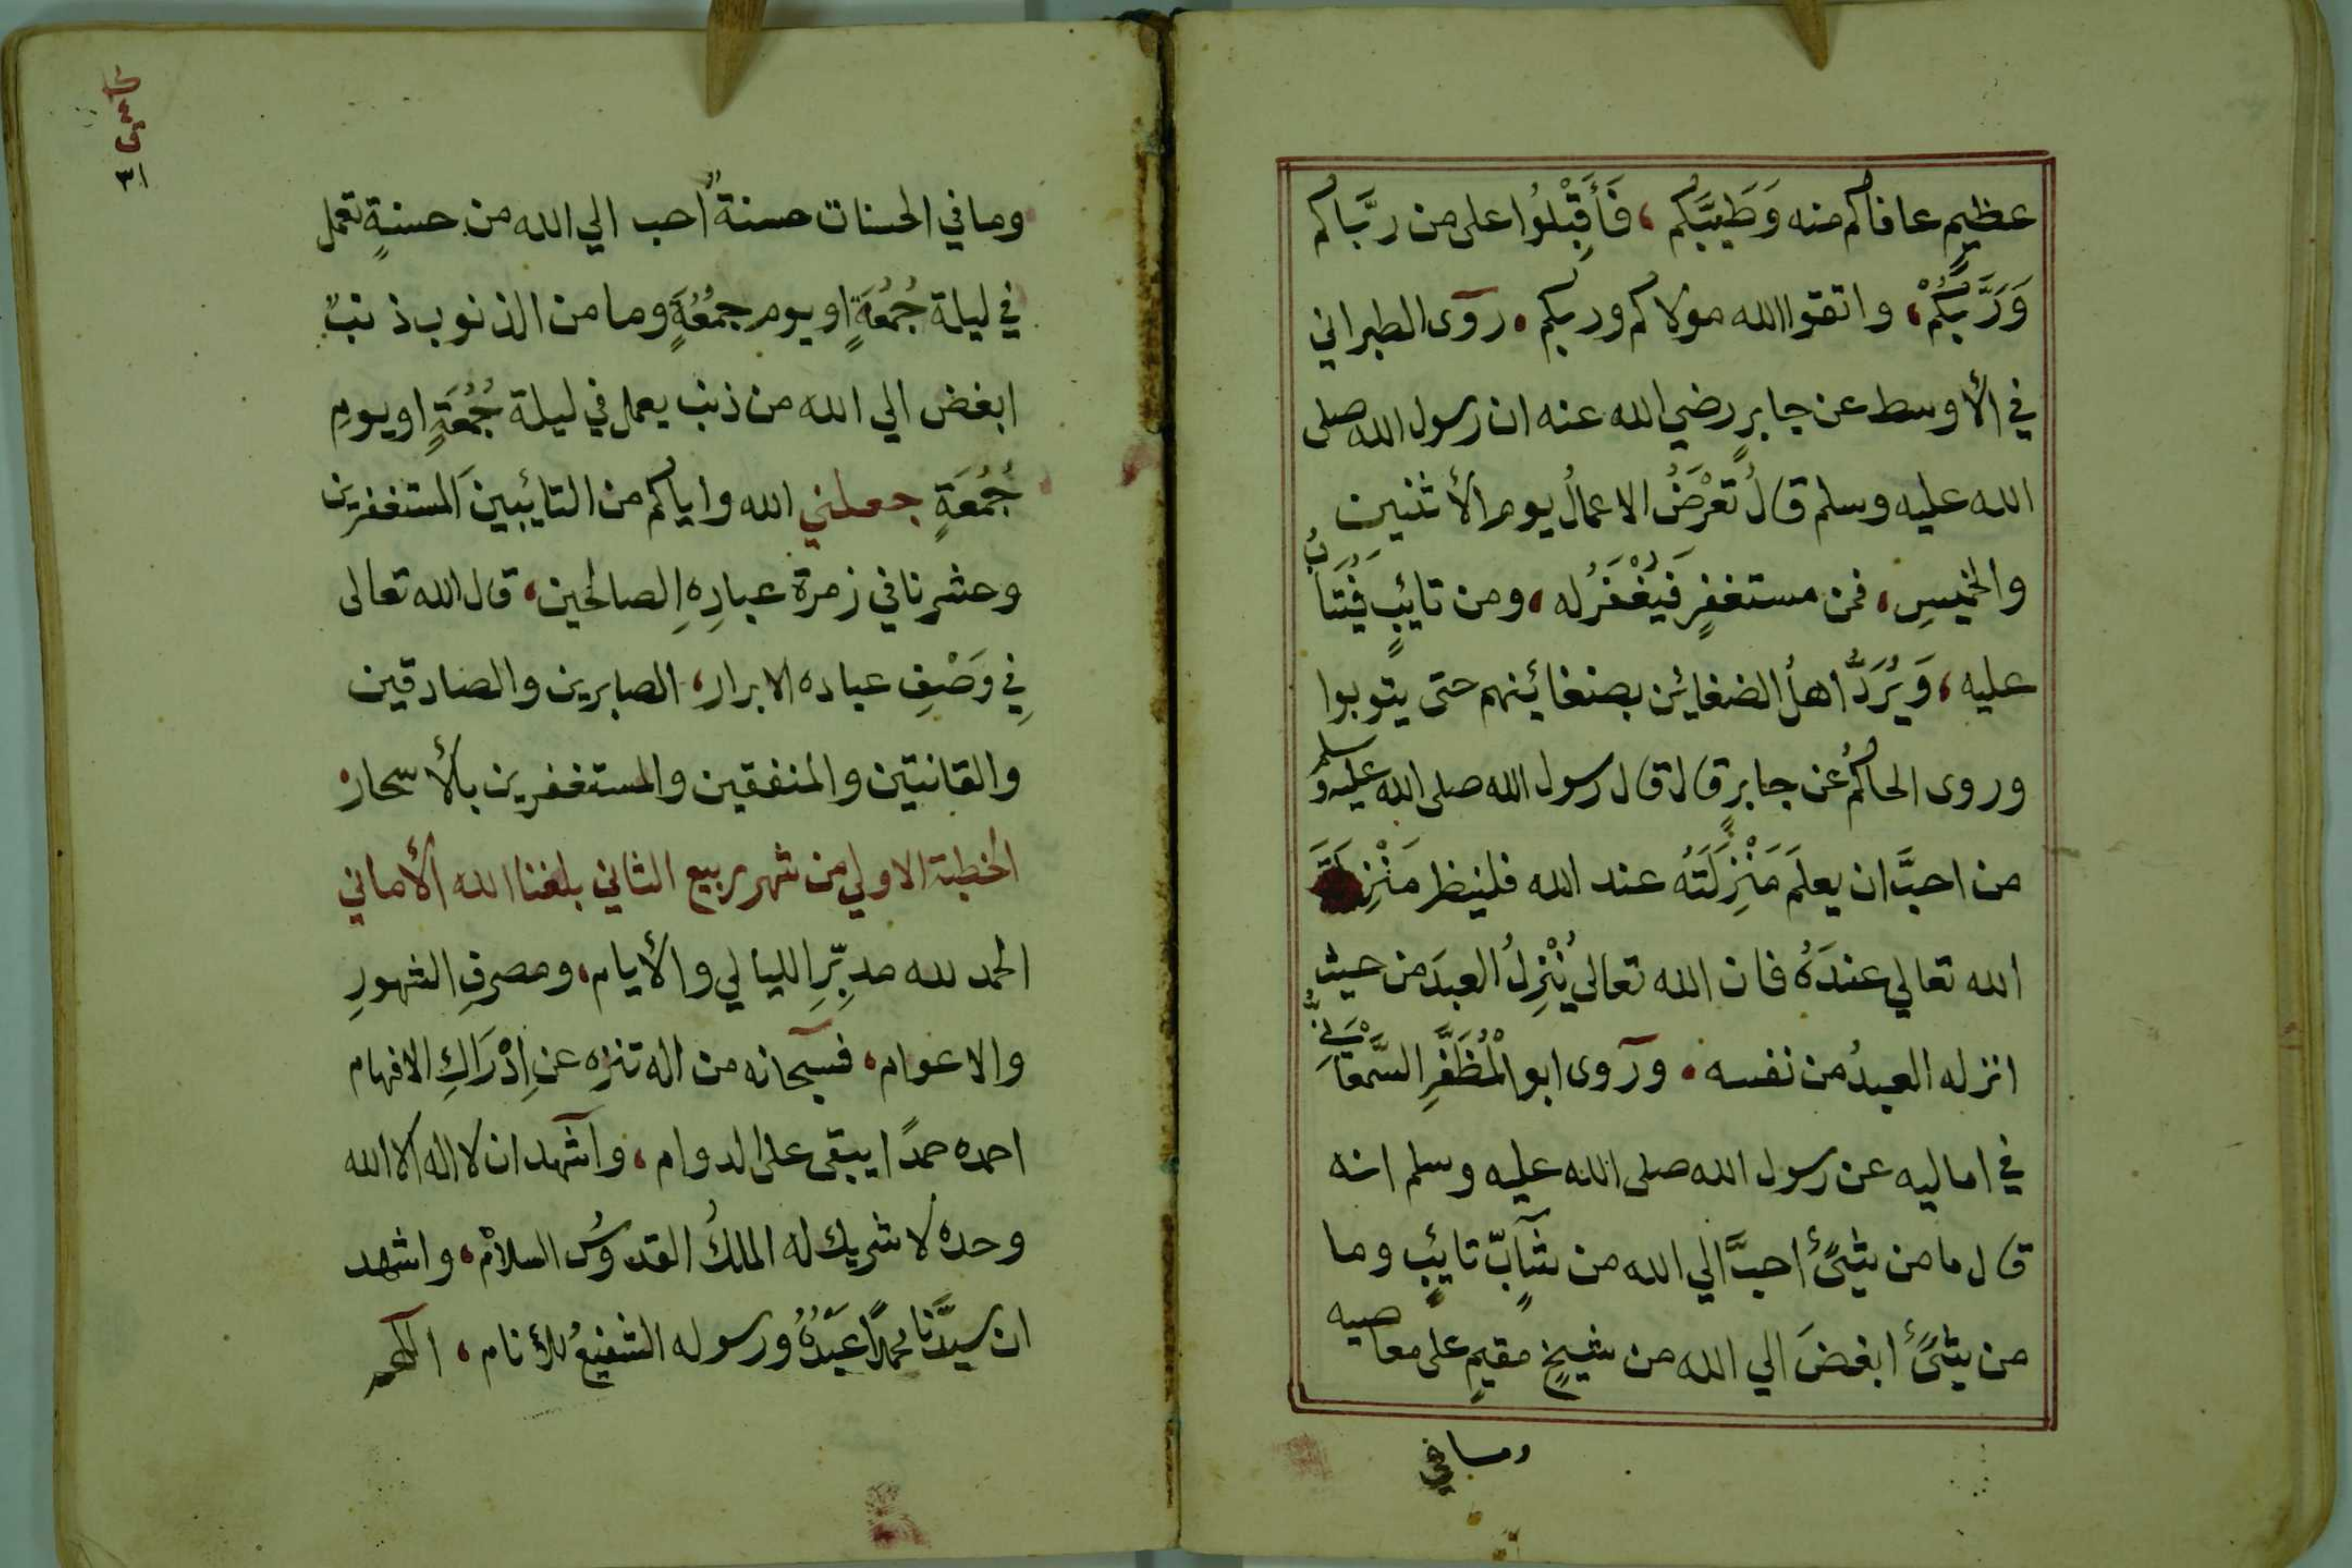 عظيمٍ عافاكم منه وَطَبيَّبَكُم، فَأَقْبِلُوا على من ربَّاكم
وَرَبَّكُمْ، واتقوا الله مولاكم وربكم. روى الطبراني
في الأوسط عن جابرٍ رضي الله عنه ان رسول الله صلى
الله عليه وسلم قالُ تُعْرَضُ الاعمالُ يوم الأثنين
والخميسِ، فمن مستغفرٍ فَيُغْفَرُ له، ومن تايبٍ فَيُتَابُ
عليه، وَيُرَدُّ اهلُ الضغاين بضغائينهم حتى يتوبوا
وروى الحاكمُ عن جابرٍ قال قال رسول الله صلى الله عليه وسلم
من احبَّ ان يعلَمَ مَنْزِلَتَهُ عند الله فلينظر مَنْزِلَةَ
الله تعالي عندَهُ فان الله تعالى يُنْزِلُ العبدَ من حيث
انزله العبدُ من نفسه. وروى ابو الْمُظَفَّرِ السَّمْعَانِيُّ
في اماليه عن رسول الله صلى الله عليه وسلم انه
قال ما من شيئٍ احبَّ الي الله من شآبٍّ تايبٍ وما
من شيئٍ ابغضَ الي الله من شيخٍ مقيمٍ على معاصيه
ومافي
٣١
ومافي الحسنات حسنةً احب الي الله من حسنةٍ تعمل
في ليلة جُمُعَةٍ او يوم جمُعُةٍ وما من الذنوب ذنبٌ
ابغض الي الله من ذنب يعمل في ليلة جُمُعَةٍ او يومِ
جُمُعَةٍ جعلني الله واياكم من التائبينَ المستغفرين
وحشرنا في زمرة عبادِهِ الصالحين، قال الله تعالى
فِي وَصْفِ عباده الابرار، الصابرين والصادقين
والقانتين والمنفقين والمستغفرين بالأسحار
الخطبة الاولي من شهر ربيع الثاني بلغنا الله الأماني
الحمد لله مدبِّرِ الليالي والأيام، ومصرفِ الشهورِ
والاعوام، فسبحانه من اله تنزه عن اِدْرَاكِ الافهام
احمده حمدًا يبقى على الدوام، واشهد ان لا اله الا الله
وحده لا شريك له الملكُ القدوسُ السلامْ، واشهد
ان سيدَّنا محمدًا عَبْدُهُ ورسوله الشفيعُ للأنام،